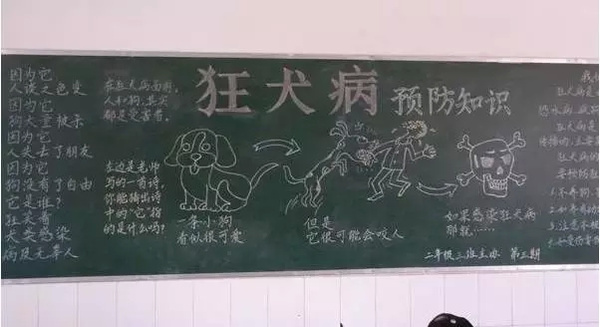 因为它
人谈之色变
因为它
狗大量被杀
因为它
人失去了朋友
因为它
狗没有了自由
它是谁？
感染
病及无辜人
在狂犬病面前，
人和狗，其实
都是受害者。
左边是老师
写的一首诗，
你能猜出诗
中的“它”指
的是什么吗？
狂犬病
预防知识
一条小狗
看似很可爱
但是
它很可能会咬人
如果感染狂犬病
那就……
二年级三班主办 第三期
狂犬病是
恐水病
狂犬病
传播的
狂犬病的
要预防狂
1.不养狗
3.注意不被